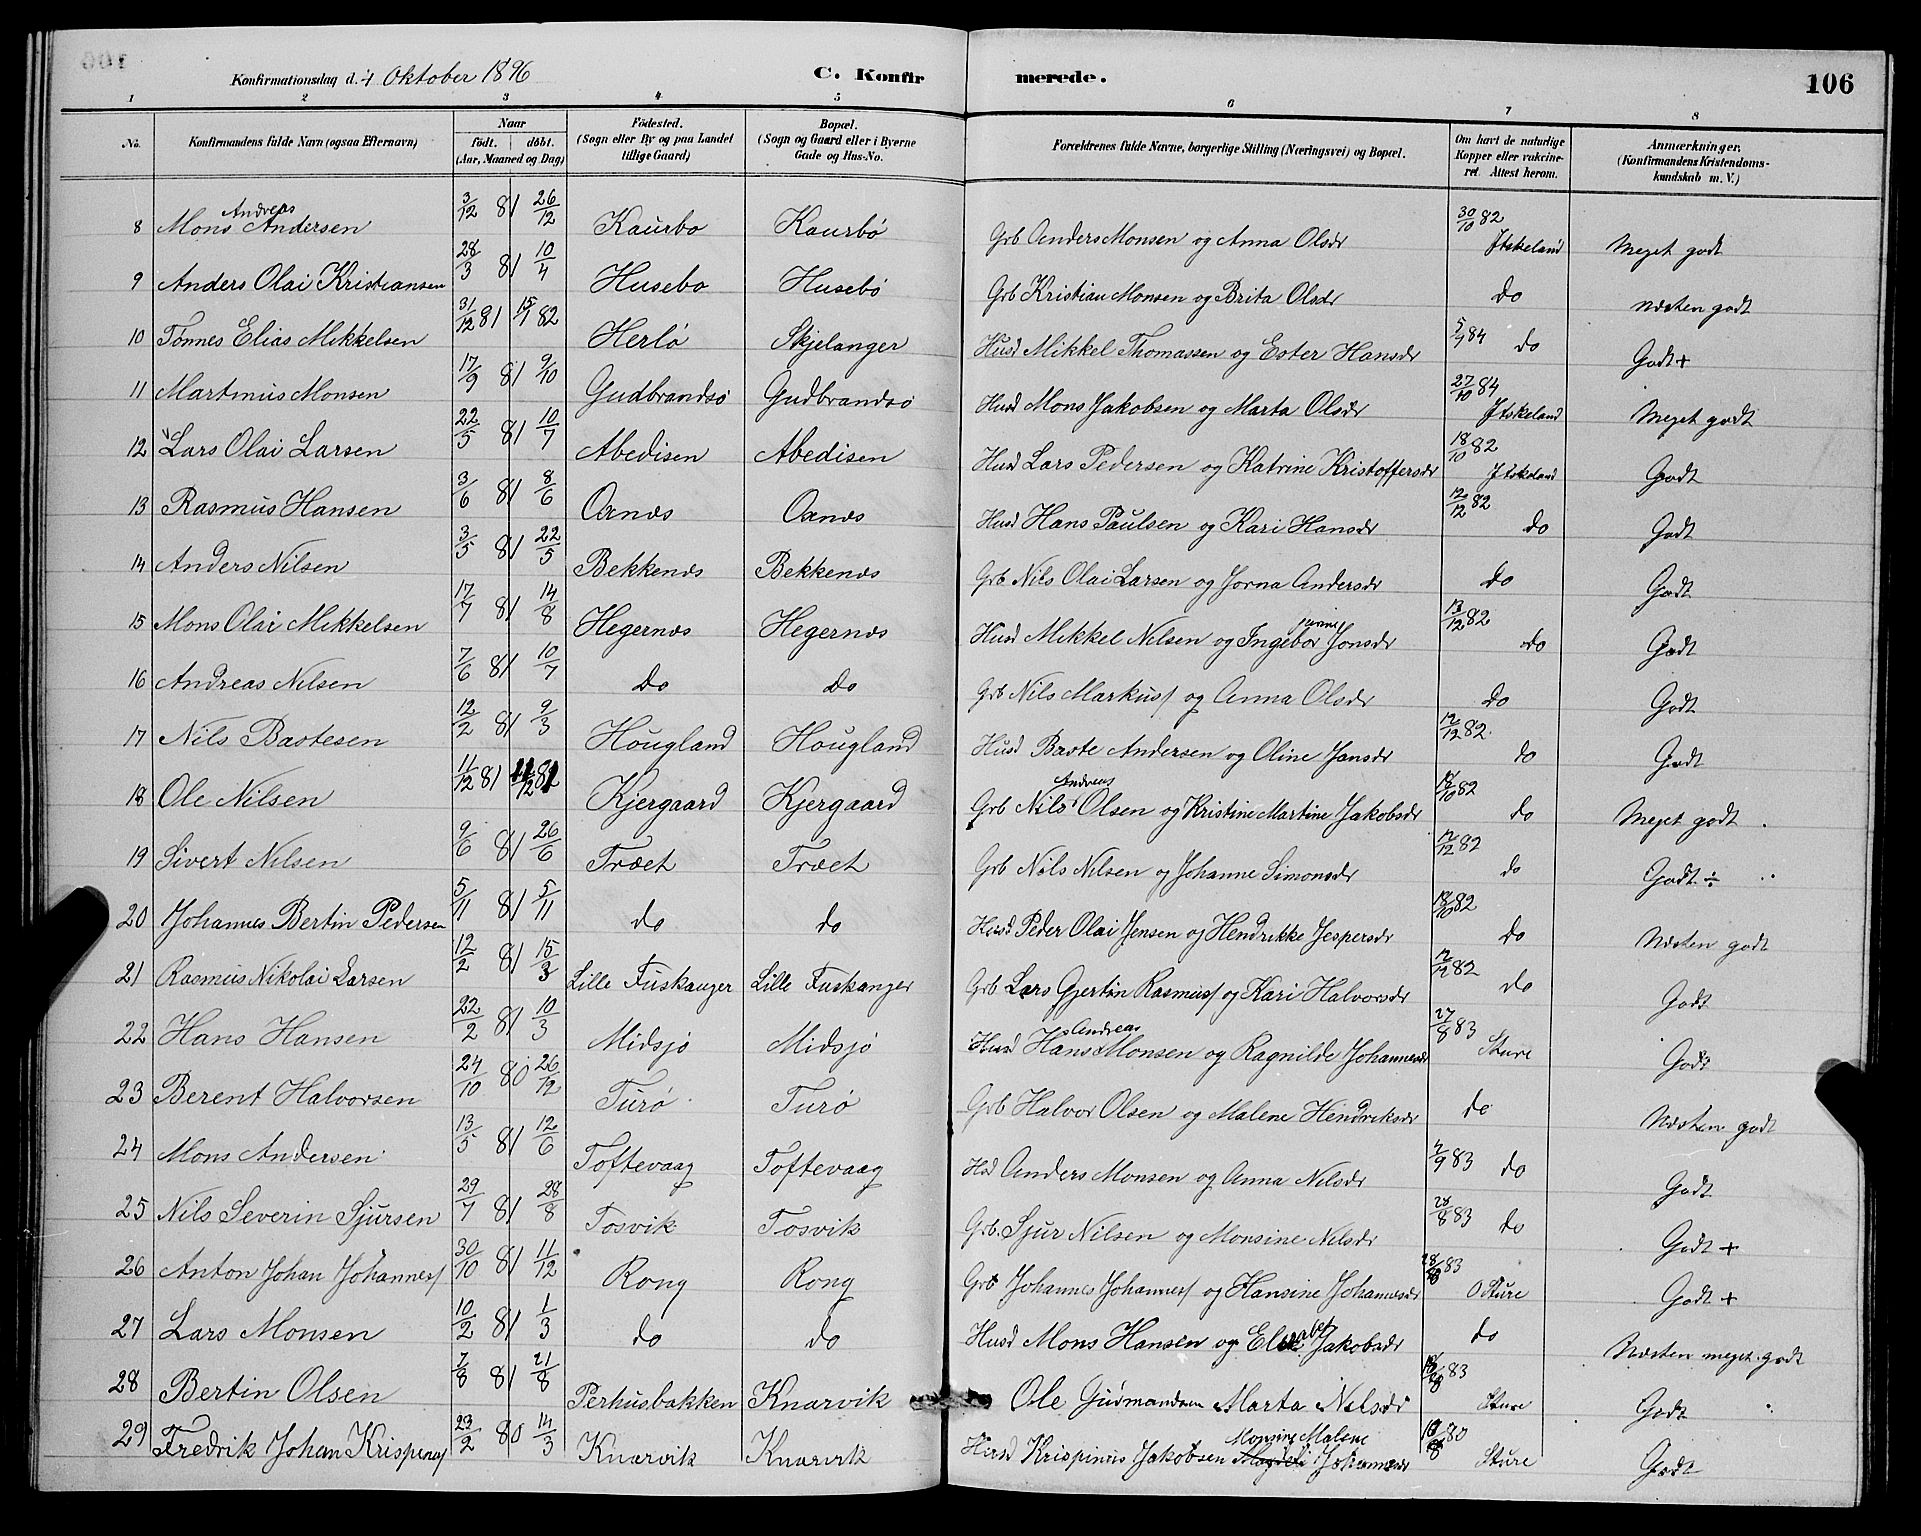 Konfirmationsdag d. 4 Oktober 1896 C. Konfir merede. 106
1 2 3 4 5 6 7 8
No. Konfirmandens fulde Navn (ogsaa Efternavn) Naar født. døbt. (Aar, Maaned og Dag) Fødested. (Sogn eller By og paa Landet tillige Gaard) Bopæl. (Sogn og Gaard eller i Byerne Gade og Hus-No. Forældrenes fulde Navne, borgerlige Stilling (Næringsvei) og Bopæl. Om havt de naturlige Kopper eller vakcineret. Attest herom. Anmærkninger. (Konfirmandens Kristendomskundskab m. V.)
8 Mons Andreas Andersen 3/12 81 26/12 Kaurbo Kaurbø Grb Anders Monsen og Anna Olsdr 30/10 82 Itskeland Meget godt
9 Anders Olai Kristiansen 28/3 81 10/4 Husebo Husebø Grb Kristian Monsen og Brita Olsdr do Næsten godt
10 Tønnes Elias Mikkelsen 31/12 81 15/1 82 Herlö Skjelanger Husd Mikkel Thomassen og Ester Hansdr 5/9 84 do Godt +
11 Martinus Monsen 17/9 81 9/10 Gudbrandsö Gudbrandsö Husd Mons Jakobsen og Marta Olsdr 27/10 84 Itskeland Meget godt
12 Lars Olai Larsen 22/5 81 10/7 Abedisen Abedisen Husd Lars Pedersen og Katrine Kristoffersdr 18/10 82 Itskeland Godt
13 Rasmus Hansen 3/6 81 8/6 Oanæs Oanæs Husd Hans Paulsen og Kari Hansdr 12/12 82 do Godt
14 Anders Nilsen 3/5 81 22/5 Bekkenæs Bekkenæs Grb Nils Olai Larsen og Jorna Andersdr do Godt
15 Mons Olai Mikkelsen 17/7 81 14/8 Hegernæs Hegernæs Husd Mikkel Nilsen og Ingebor Jonsdr 13/12 82 do Godt
16 Andreas Nilsen 7/6 81 10/7 do do Grb Nils Markus/ og Anna Olsdr do Godt
17 Nils Bastesen 12/2 81 9/3 Hougland Hougland Husd Baste Andersen og Oline Jansdr 12/12 82 do Godt
18 Ole Nilsen 11/12 81 Kjergaard Kjergaard Grb Nils Andreas Olsen og Kristine Martine Jakobsdr 18/10 82 do Meget godt
19 Sivert Nilsen 9/6 81 26/6 Træet Træet Grb Nils Nilsen og Johanne Simonsdr 12/12 82 do Godt ÷
20 Johannes Bertin Pedersen 5/11 81 5/11 do do Husd Peder Olai Jensen og Hendrikke Jespersdr 18/10 82 do Næsten godt
21 Rasmus Nikolai Larsen 12/2 81 15/3 Lille Fuskanger Lille Fuskanger Grb Lars Gjertin Rasmus/ og Kari Halvorsdr 12/12 82 do Godt
22 Hans Hansen 22/2 81 10/3 Midsjö Midsjö Husd Hans Andreas Monsen og Ragnilde Johannesdr 27/8 83 Sture Godt
23 Berent Halvorsen 24/10 80 26/12 Turø Turø Grb Halvor Olsen og Malene Hendriksdr do Næsten godt
24 Mons Andersen 13/5 81 12/6 Toftevaag Toftevaag Hsd Anders Monsen og Anna Nilsdr 4/9 83 do Godt
25 Nils Severin Sjursen 29/7 81 28/8 Tosvik Tosvik Grb. Sjur Nilsen og Monsine Nilsdr 28/8 83 do Godt +
26 Anton Johan Johannes/ 30/10 81 11/12 Rong Rong Grb Johannes Johannes/ og Hansine Johannesdr 28/8 83 Sture Godt +
27 Lars Monsen 10/2 81 1/3 do do Husd Mons Hansen og Jakobsdr do Næsten meget godt
28 Bertin Olsen 7/8 81 21/8 Perhusbakken Knarvik Ole Gudmandsen Marta Nilsdr 83 Sture Godt
29 Fredrik Johan Krispinus/ 23/2 80 14/3 Knarvik Knarvik Husd Krispinus Jakobsen Monsine Malene Johannesdr 80 Sture Godt